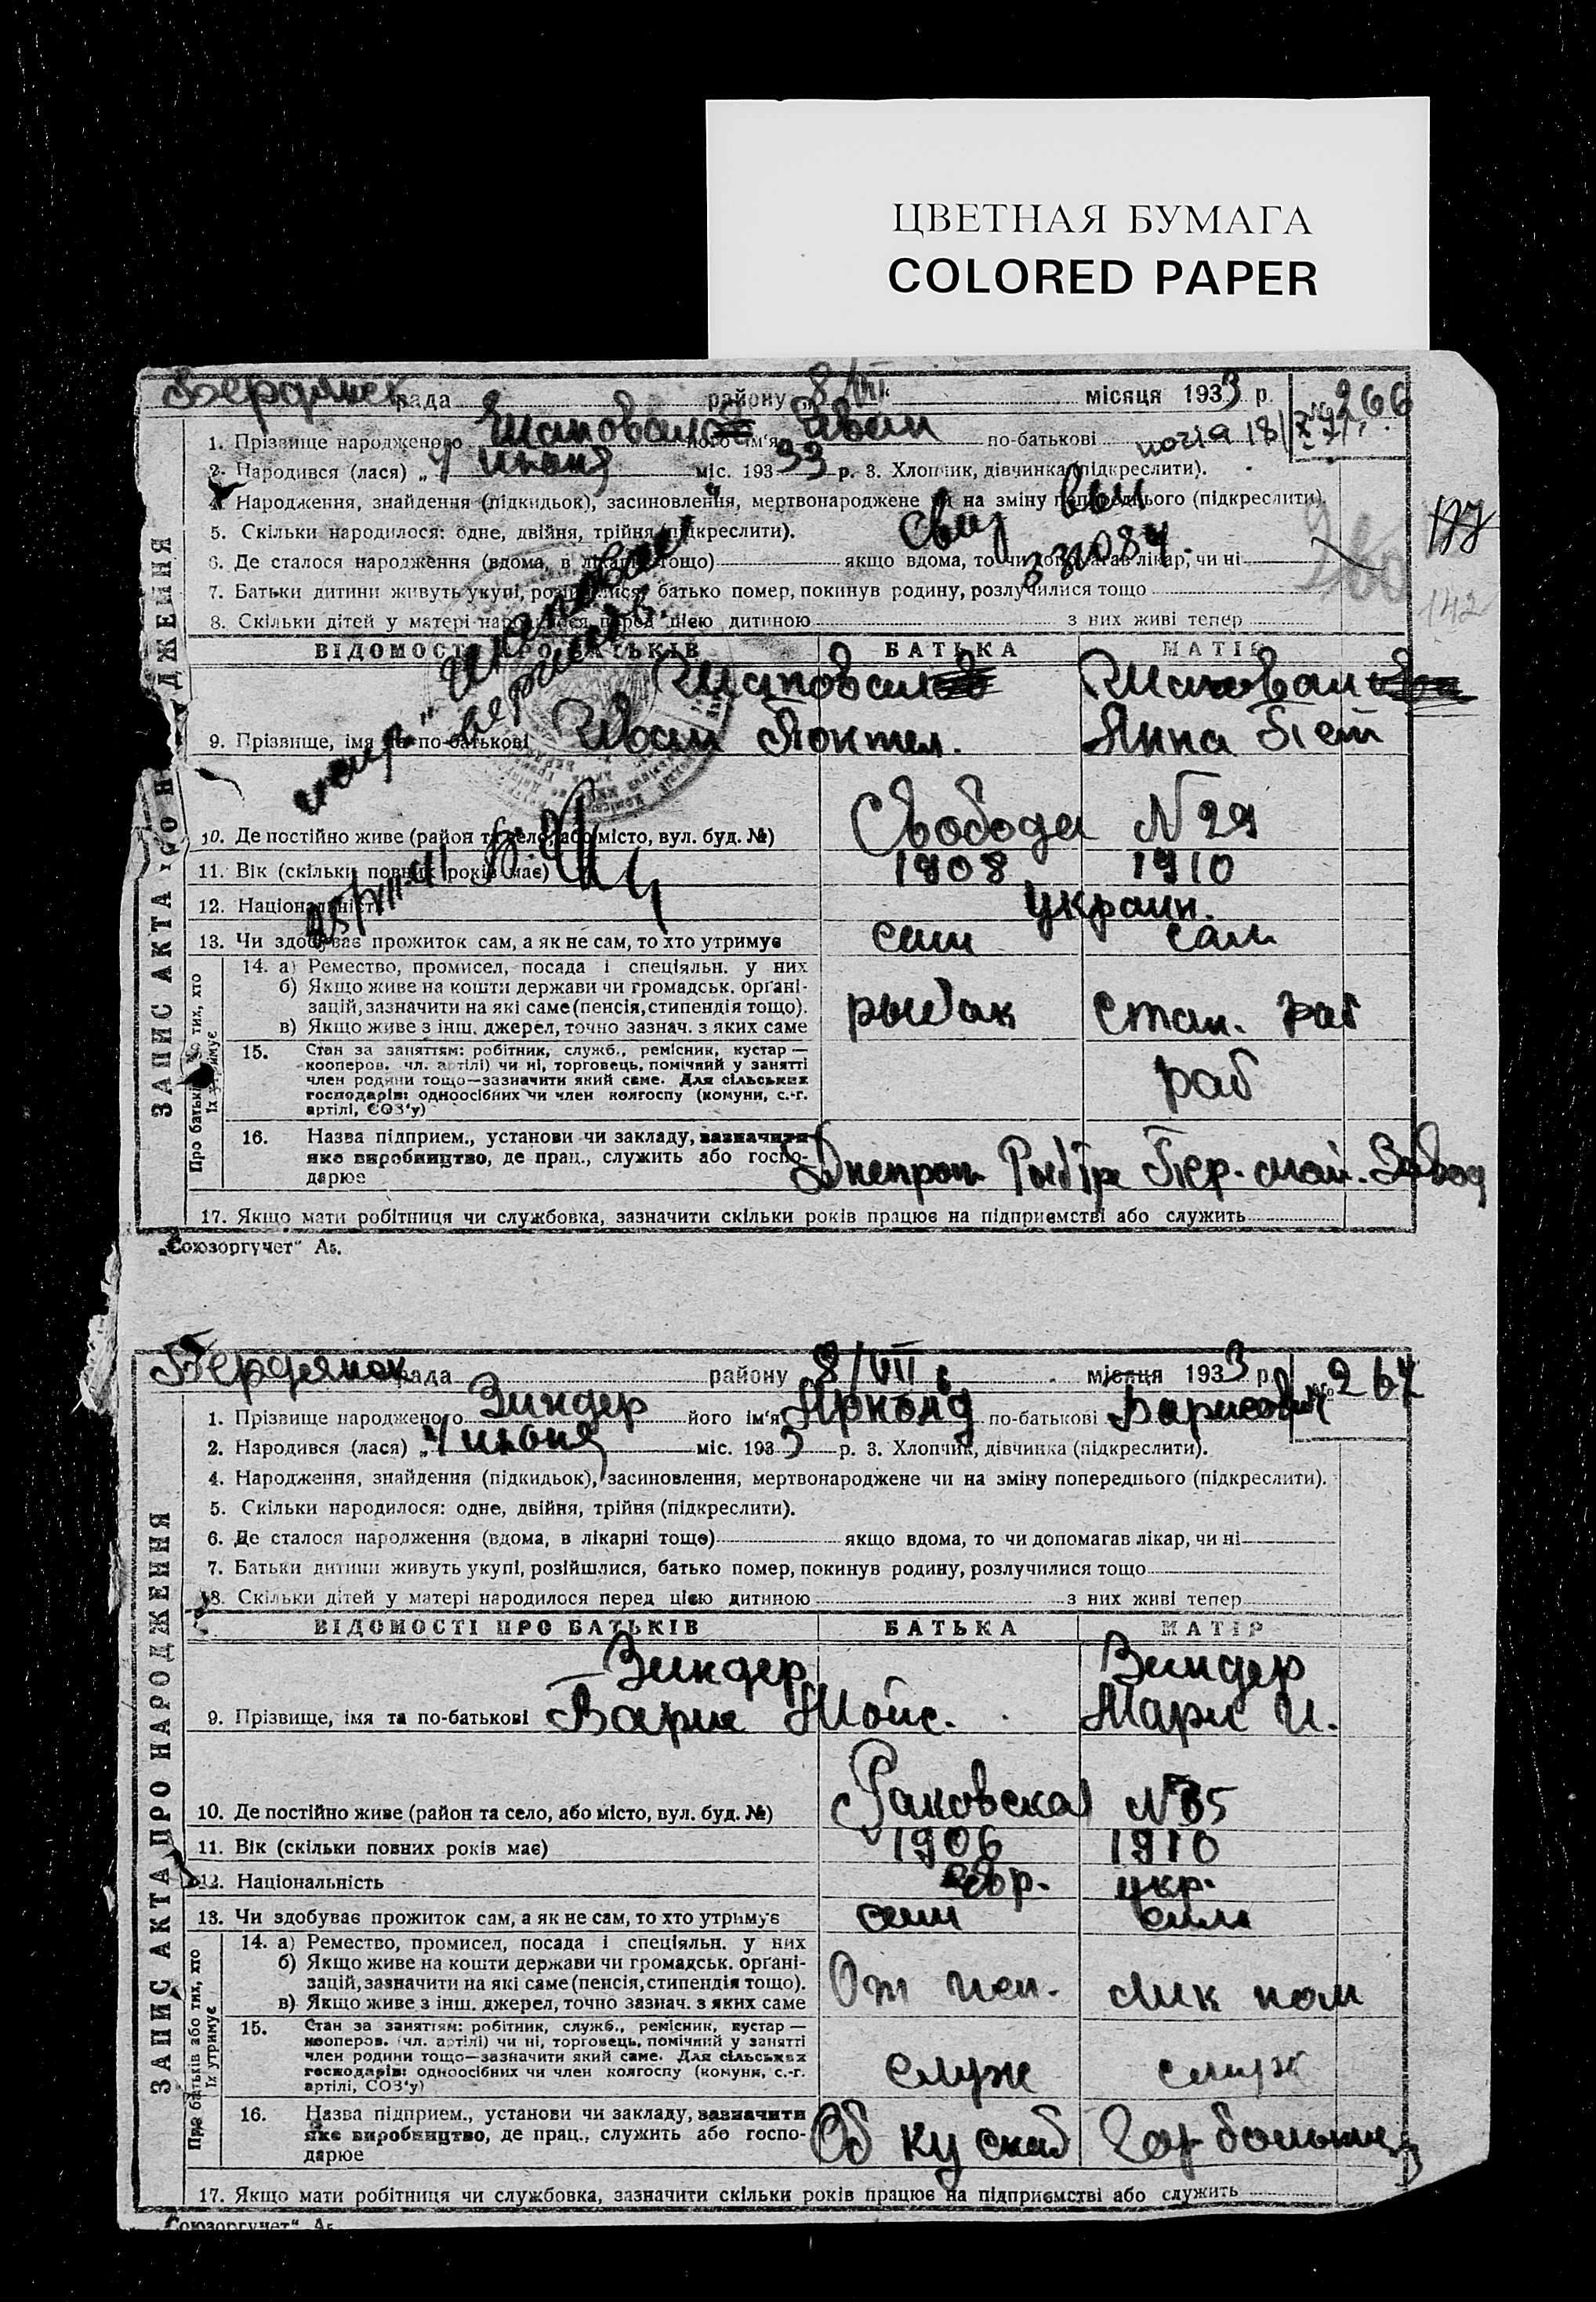 ЦВЕТНАЯ БУМАГА
COLORED PAPER
Бердянск рада району 8/VII місяця 1933 р. № 266
1. Прізвище народженого Шаповал його ім'я Иван по-батькові
2. Народився (лася) „4 июня міс. 1933 р. 3. Хлопчик, дівчинка (підкреслити).
4. Народження, знайдення (підкидьок), засиновлення, мертвонароджене чи на зміну попереднього (підкреслити).
5. Скільки народилося: одне, двійня, трійня (підкреслити).
6. Де сталося народження (вдома, в лікарні тощо) якщо вдома, то чи допомагав лікар, чи ні
7. Батьки дитини живуть укупі, розійшлися, батько помер, покинув родину, розлучилися тощо
142
8. Скільки дітей у матері народилося перед цією дитиною з них живі тепер
ВІДОМОСТІ ПРО БАТЬКІВ БАТЬКА МАТІР
Шаповал Шаповал
9. Прізвище, імя та по-батькові Иван Анна
10. Де постійно живе (район та село, або місто, вул. буд. №) Свобода N 29
11. Вік (скільки повних років має) 1908 1910
12. Національність украин.
13. Чи здобуває прожиток сам, а як не сам, то хто утримує сам сам
14. а) Ремество, промисел, посада і спеціяльн. у них
б) Якщо живе на кошти держави чи громадськ. орґані-
зацій, зазначити на які саме (пенсія, стипендія тощо). рыбак
в) Якщо живе з інш. джерел, точно зазнач. з яких саме
15. Стан за заняттям: робітник, служб., ремісник, кустар —
кооперов. чл. артілі) чи ні, торговець, помічний у занятті
член родини тощо—зазначити який саме. Для сільських
господарів: одноосібних чи член колгоспу (комуни, с.-г. раб
артілі, СОЗ'у)
16. Назва підприєм., установи чи закладу, зазначити
яке виробництво, де прац., служить або госпо- Завод
дарює
17. Якщо мати робітниця чи службовка, зазначити скільки років працює на підприємстві або служить
ЗАПИС АКТА ПРО НАРОДЖЕННЯ
Про батьків або тих, хто
їх утримує
„Союзоргучет" А5.
Бердянск рада району 8/VII місяця 1933 р. № 267
1. Прізвище народженого Зиндер його ім'я Арнольд по-батькові Борисович
2. Народився (лася) „4 июня міс. 1933 р. 3. Хлопчик, дівчинка (підкреслити).
4. Народження, знайдення (підкидьок), засиновлення, мертвонароджене чи на зміну попереднього (підкреслити).
5. Скільки народилося: одне, двійня, трійня (підкреслити).
6. Де сталося народження (вдома, в лікарні тощо) якщо вдома, то чи допомагав лікар, чи ні
7. Батьки дитини живуть укупі, розійшлися, батько помер, покинув родину, розлучилися тощо
8. Скільки дітей у матері народилося перед цією дитиною з них живі тепер
ВІДОМОСТІ ПРО БАТЬКІВ БАТЬКА МАТІР
Зиндер Зиндер
9. Прізвище, імя та по-батькові Барис Мойс. Мари И.
10. Де постійно живе (район та село, або місто, вул. буд. №) Раковская N 35
11. Вік (скільки повних років має) 1906 1910
12. Національність евр. укр.
13. Чи здобуває прожиток сам, а як не сам, то хто утримує сам сама
14. а) Ремество, промисел, посада і спеціяльн. у них
б) Якщо живе на кошти держави чи громадськ. орґані-
зацій, зазначити на які саме (пенсія, стипендія тощо).
в) Якщо живе з інш. джерел, точно зазнач. з яких саме
15. Стан за заняттям: робітник, служб., ремісник, кустар —
кооперов. (чл. артілі) чи ні, торговець, помічний у занятті
член родини тощо—зазначити який саме. Для сільських
господарів: одноосібних чи член колгоспу (комуни, с.-г. служ служ
артілі, СОЗ'у)
16. Назва підприєм., установи чи закладу, зазначити
яке виробництво, де прац., служить або госпо-
дарює
17. Якщо мати робітниця чи службовка, зазначити скільки років працює на підприємстві або служить
ЗАПИС АКТА ПРО НАРОДЖЕННЯ
Про батьків або тих, хто
їх утримує
„Союзоргучет" А5